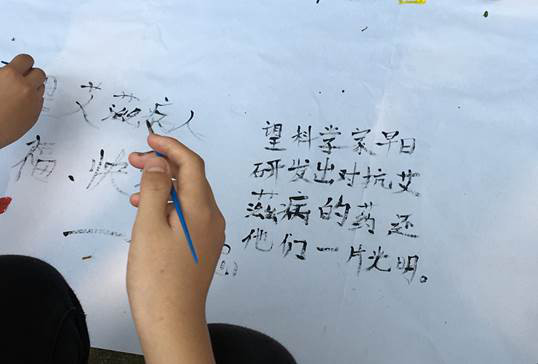 艾滋病人
福、快
望科学家早日
研发出对抗艾
滋病的药还
他们一片光明。